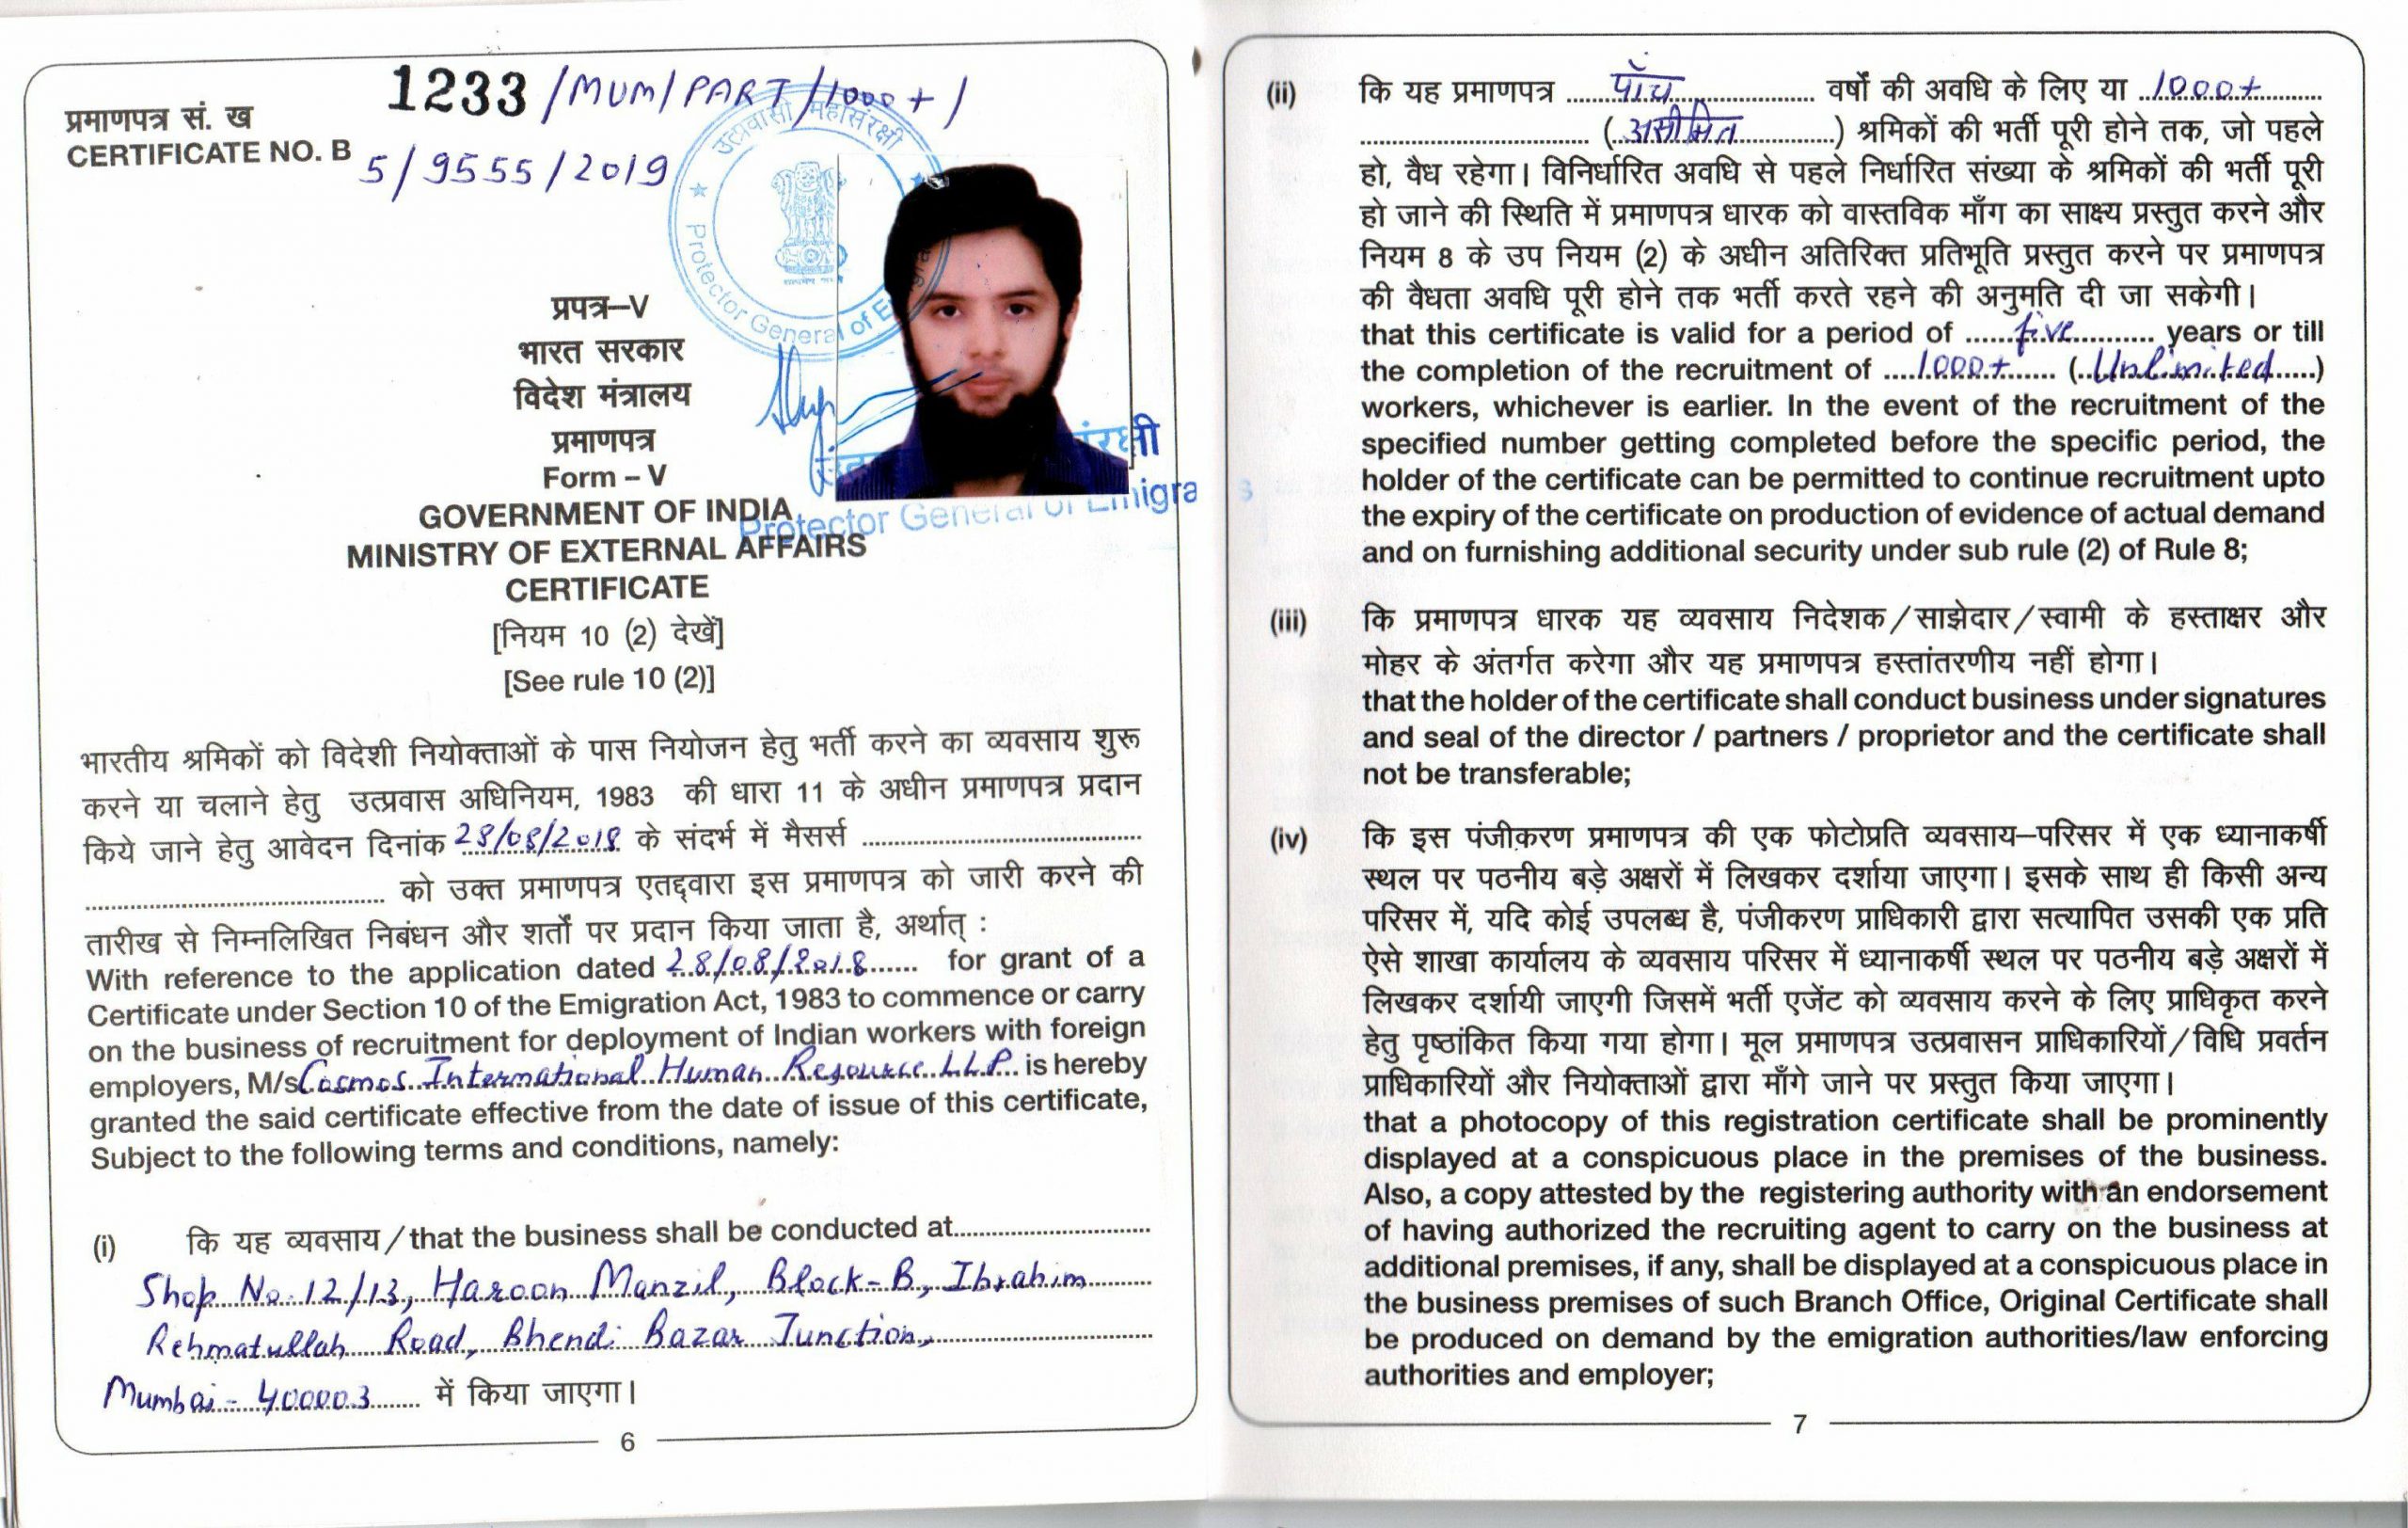 प्रमाणपत्र सं. ख
CERTIFICATE NO. B 1233/MUM/PART/1000+/
5/9555/2019
उत्प्रवासी महासंरक्षी
Protector General of
प्रपत्र–V
भारत सरकार
विदेश मंत्रालय
प्रमाणपत्र
Form – V
GOVERNMENT OF INDIA
Protector General of Emigra
MINISTRY OF EXTERNAL AFFAIRS
CERTIFICATE
[नियम 10 (2) देखें]
[See rule 10 (2)]
भारतीय श्रमिकों को विदेशी नियोक्ताओं के पास नियोजन हेतु भर्ती करने का व्यवसाय शुरू
करने या चलाने हेतु उत्प्रवास अधिनियम, 1983 की धारा 11 के अधीन प्रमाणपत्र प्रदान
किये जाने हेतु आवेदन दिनांक 28/08/2018 के संदर्भ में मैसर्स ........................................
........................................ को उक्त प्रमाणपत्र एतद्द्वारा इस प्रमाणपत्र को जारी करने की
तारीख से निम्नलिखित निबंधन और शर्तों पर प्रदान किया जाता है, अर्थात् :
With reference to the application dated 28/08/2018 for grant of a
Certificate under Section 10 of the Emigration Act, 1983 to commence or carry
on the business of recruitment for deployment of Indian workers with foreign
employers, M/s Cosmos International Human Resource LLP. is hereby
granted the said certificate effective from the date of issue of this certificate,
Subject to the following terms and conditions, namely:
(i) कि यह व्यवसाय / that the business shall be conducted at............................
Shop No. 12/13, Haroon Manzil, Block-B, Ibrahim
Rehmatullah Road, Bhendi Bazar Junction,
Mumbai - 400003 में किया जाएगा।
6
(ii) कि यह प्रमाणपत्र पाँच वर्षों की अवधि के लिए या 1000+
(असीमित) श्रमिकों की भर्ती पूरी होने तक, जो पहले
हो, वैध रहेगा। विनिर्धारित अवधि से पहले निर्धारित संख्या के श्रमिकों की भर्ती पूरी
हो जाने की स्थिति में प्रमाणपत्र धारक को वास्तविक माँग का साक्ष्य प्रस्तुत करने और
नियम 8 के उप नियम (2) के अधीन अतिरिक्त प्रतिभूति प्रस्तुत करने पर प्रमाणपत्र
की वैधता अवधि पूरी होने तक भर्ती करते रहने की अनुमति दी जा सकेगी।
that this certificate is valid for a period of five years or till
the completion of the recruitment of 1000+ (Unlimited)
workers, whichever is earlier. In the event of the recruitment of the
specified number getting completed before the specific period, the
holder of the certificate can be permitted to continue recruitment upto
the expiry of the certificate on production of evidence of actual demand
and on furnishing additional security under sub rule (2) of Rule 8;
(iii) कि प्रमाणपत्र धारक यह व्यवसाय निदेशक/साझेदार/स्वामी के हस्ताक्षर और
मोहर के अंतर्गत करेगा और यह प्रमाणपत्र हस्तांतरणीय नहीं होगा।
that the holder of the certificate shall conduct business under signatures
and seal of the director / partners / proprietor and the certificate shall
not be transferable;
(iv) कि इस पंजीकरण प्रमाणपत्र की एक फोटोप्रति व्यवसाय–परिसर में एक ध्यानाकर्षी
स्थल पर पठनीय बड़े अक्षरों में लिखकर दर्शाया जाएगा। इसके साथ ही किसी अन्य
परिसर में, यदि कोई उपलब्ध है, पंजीकरण प्राधिकारी द्वारा सत्यापित उसकी एक प्रति
ऐसे शाखा कार्यालय के व्यवसाय परिसर में ध्यानाकर्षी स्थल पर पठनीय बड़े अक्षरों में
लिखकर दर्शायी जाएगी जिसमें भर्ती एजेंट को व्यवसाय करने के लिए प्राधिकृत करने
हेतु पृष्ठांकित किया गया होगा। मूल प्रमाणपत्र उत्प्रवासन प्राधिकारियों/विधि प्रवर्तन
प्राधिकारियों और नियोक्ताओं द्वारा माँगे जाने पर प्रस्तुत किया जाएगा।
that a photocopy of this registration certificate shall be prominently
displayed at a conspicuous place in the premises of the business.
Also, a copy attested by the registering authority with an endorsement
of having authorized the recruiting agent to carry on the business at
additional premises, if any, shall be displayed at a conspicuous place in
the business premises of such Branch Office, Original Certificate shall
be produced on demand by the emigration authorities/law enforcing
authorities and employer;
7